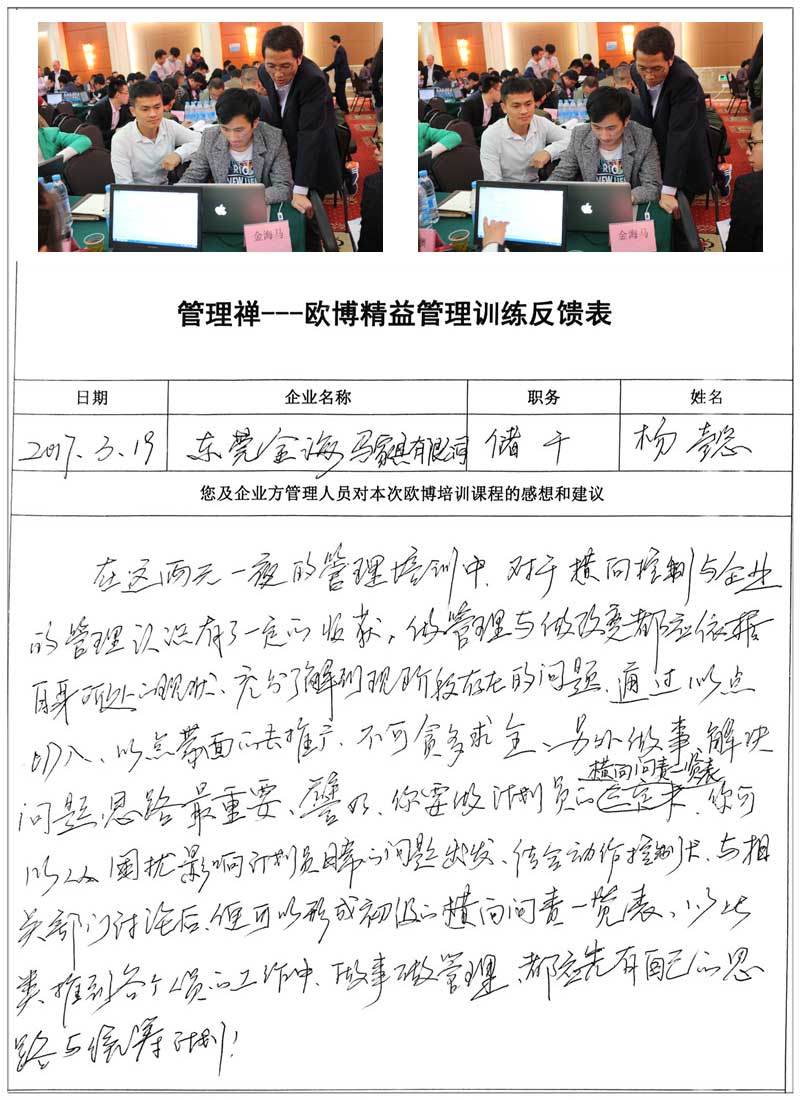 金海马
金海马
管理禅---欧博精益管理训练反馈表
日期 企业名称 职务 姓名
2017.3.19 东莞金海马家具有限公司 储干 杨
您及企业方管理人员对本次欧博培训课程的感想和建议
在这两天一夜的管理培训中、对于横向控制与企业
的管理认识有了一定的收获，做管理与做改变都应依据
自身所处的现状、充分了解到现阶段存在的问题、通过以点
切入、以点带面的去推广、不可贪多求全、另外做事、解决
横向问责一览表
问题思路最重要、譬如、你要做计划员的、你可
以从困扰影响计划员日常的问题出发、结合动作控制法、与相
关部门讨论后、便可以形成初级的横向问责一览表、以此
类推到各个人员的工作中、做事做管理、都应先有自己的思
路与统筹计划！